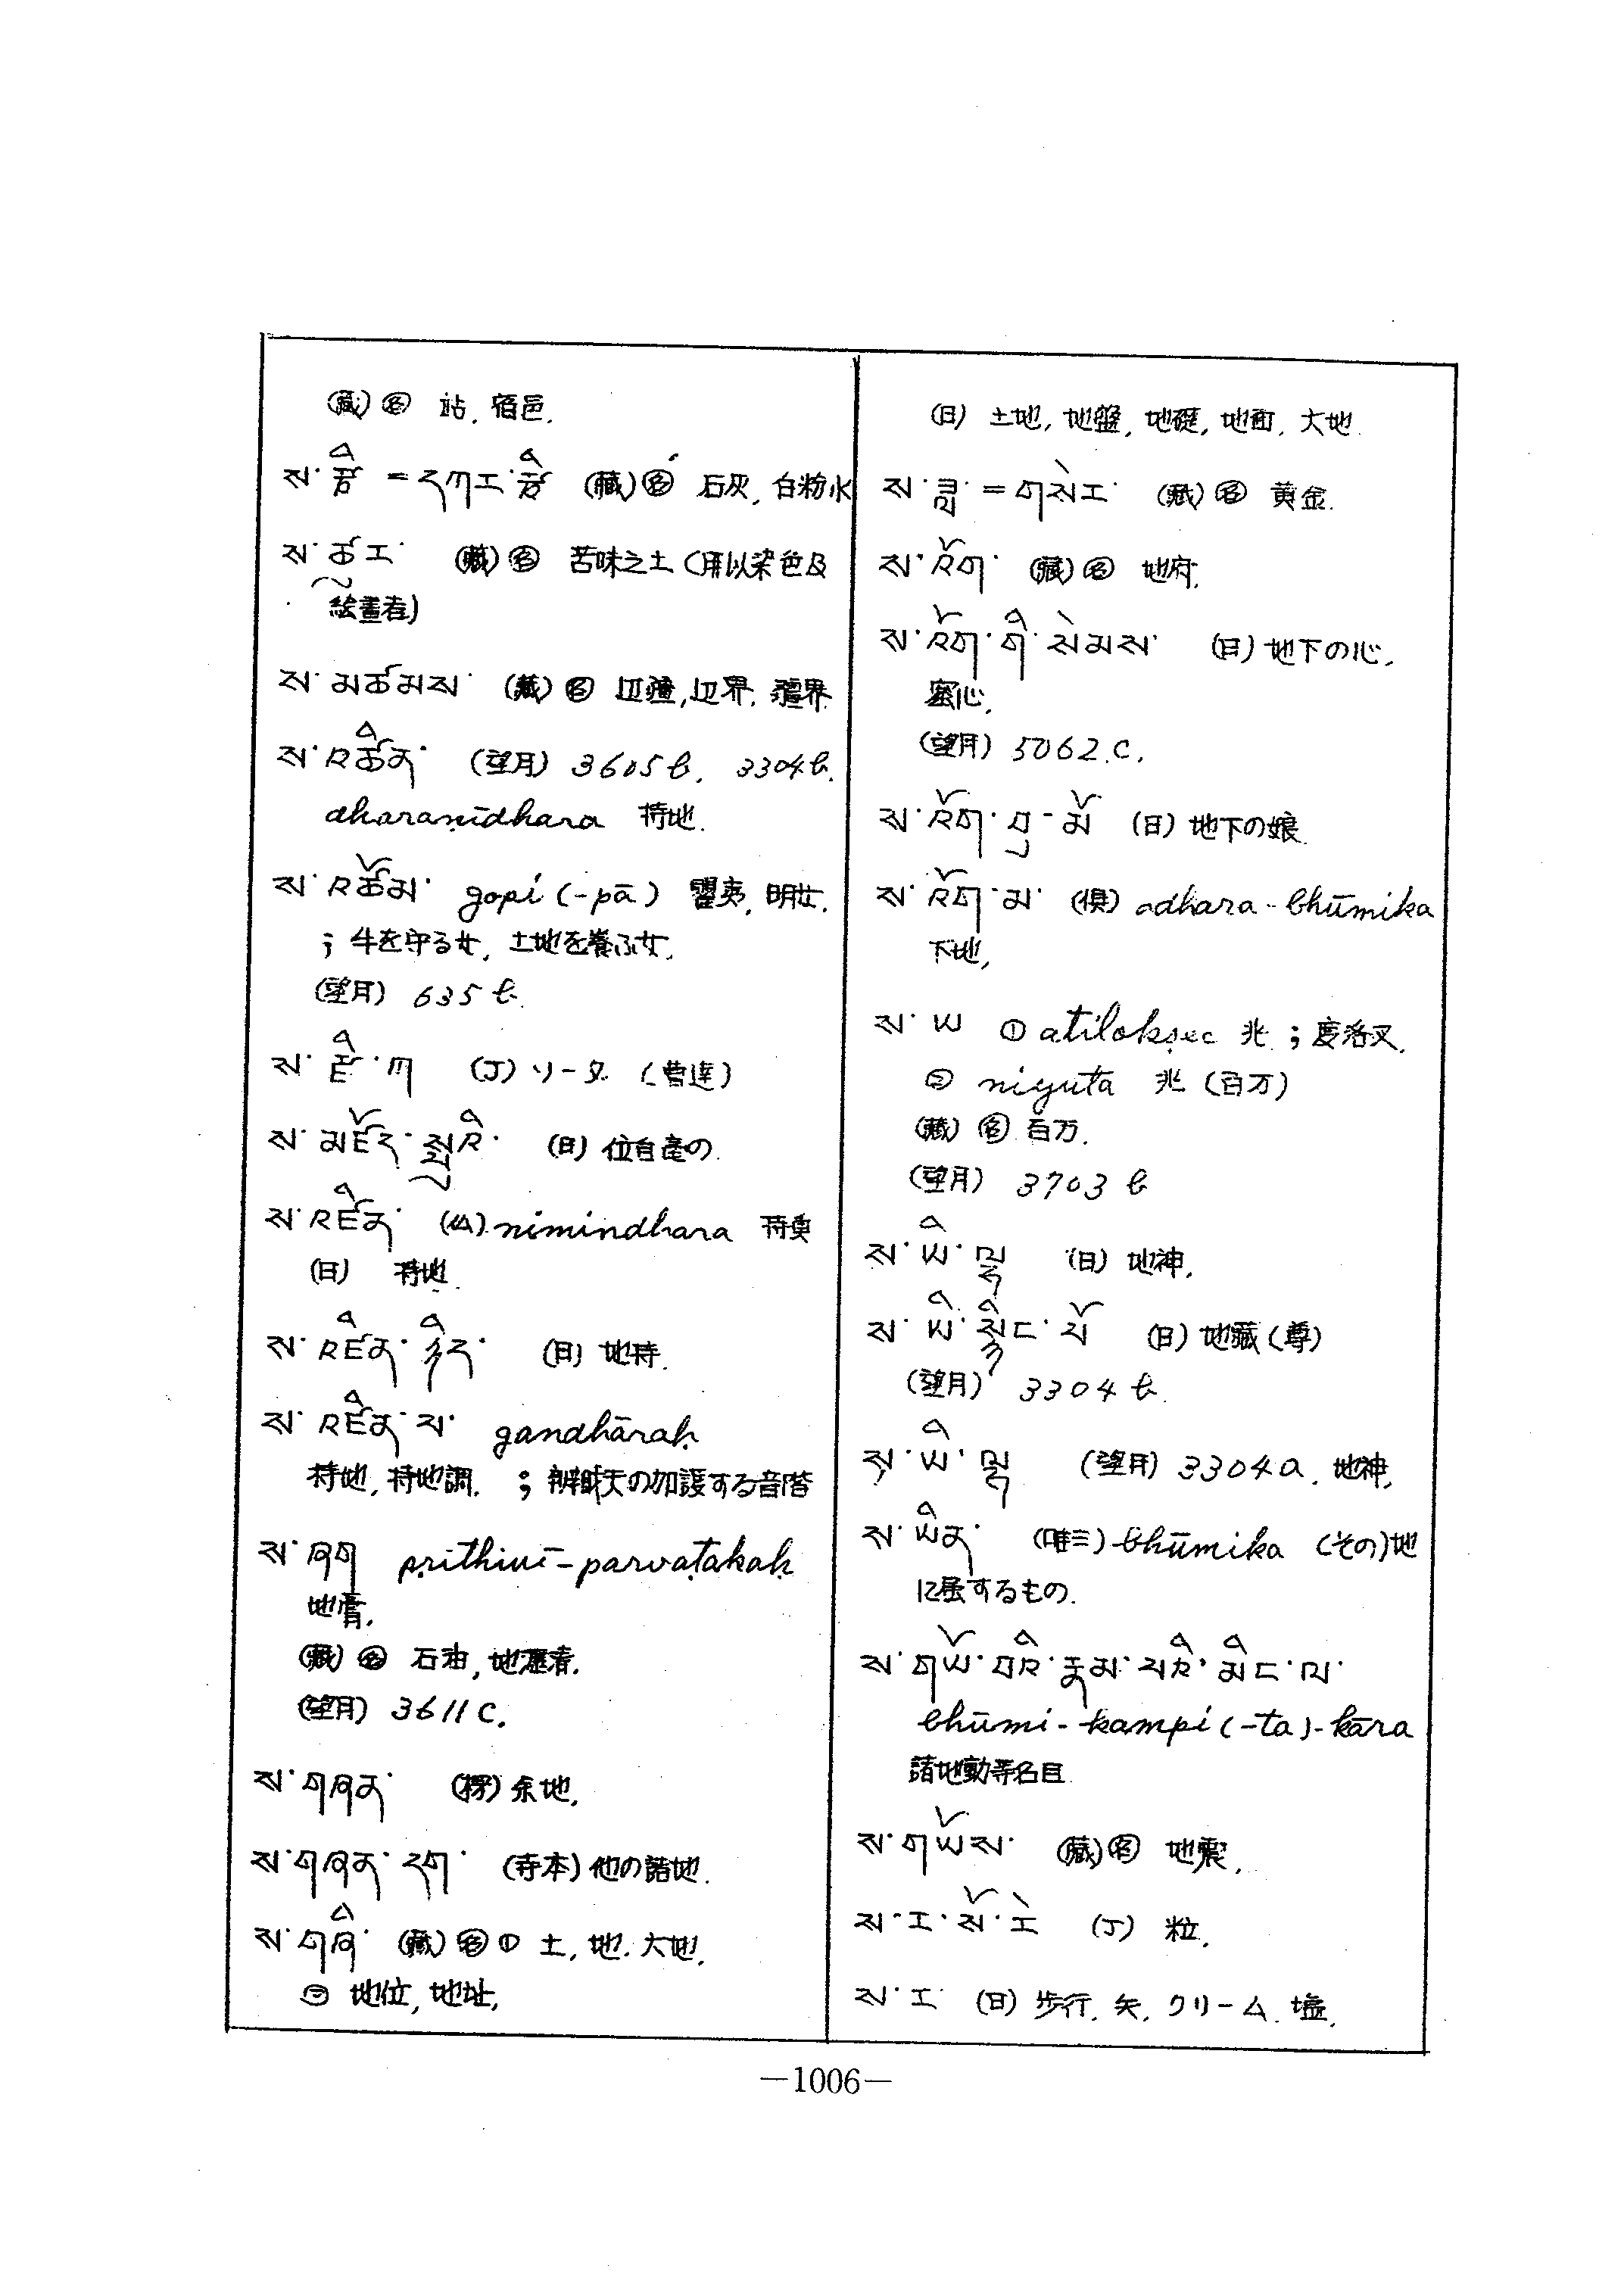 (藏) 名 站, 宿邑.
ས་རྩི = དཀར་རྩི (藏) 名 石灰, 白粉水
ས་ཚྭར (藏) 名 苦味之土 (用以染色及
絵畫者)
ས་མཚམས་ (藏) 名 辺疆, 辺界, 疆界
ས་འཚིན་ (望月) 3605b, 3304b.
dharaṇīdhara 持地.
ས་འཚོམ་ gopi (-pā) 瞿夷, 明女.
; 牛を守る女, 土地を養ふ女.
(望月) 635b.
ས་ཛི་ཀ (J) ソータ (曹達)
ས་མཛོད་སྤྲའི་ (日) 位自産の.
ས་འཛིན་ (仏) nimindhara 持奥
(日) 持地
ས་འཛིན་ཉིད་ (日) 地持.
ས་འཛིན་པ་ gandhāraḥ
持地, 持地調. ; 辨財天の加護する音階
ས་ཞག pṛithivī-parvaṭakaḥ
地膏.
(藏) 名 石油, 地瀝青.
(望月) 3611c.
ས་གཞན་ (楞) 余地.
ས་གཞན་དག་ (寺本) 他の諸地.
ས་གཞི་ (藏) 名 ① 土, 地, 大地.
② 地位, 地址,
(日) 土地, 地盤, 地礎, 地面, 大地.
ས་ཟླ་ = གསེར་ (藏) 名 黄金.
ས་འོག་ (藏) 名 地府.
ས་འོག་གི་སེམས་ (日) 地下の心,
密心.
(望月) 5062.c.
ས་འོག་བུ-མོ (日) 地下の娘.
ས་འོག་མ་ (倶) adhara-bhūmika
下地,
ས་ཡ ① atilokṣec 兆 ; 度洛叉.
② niyuta 兆 (百万)
(藏) 名 百万.
(望月) 3703b
ས་ཡི་ལྷ (日) 地神.
ས་ཡི་སྙིང་པོ (日) 地藏(尊)
(望月) 3304b.
ས་ཡི་ལྷ (望月) 3304a. 地神,
ས་ཡིན་ (唯三) bhūmika (その)地
に属するもの.
ས་གཡོ་བའི་རྣམ་པའི་མིང་ལ་
bhūmi-kampi(-ta)-kāra
諸地動等名目
ས་གཡོས་ (藏) 名 地震,
ས་ར་སོ་རེ (J) 粒.
ས་ར་ (日) 歩行, 矢, クリーム, 塩.
—1006—